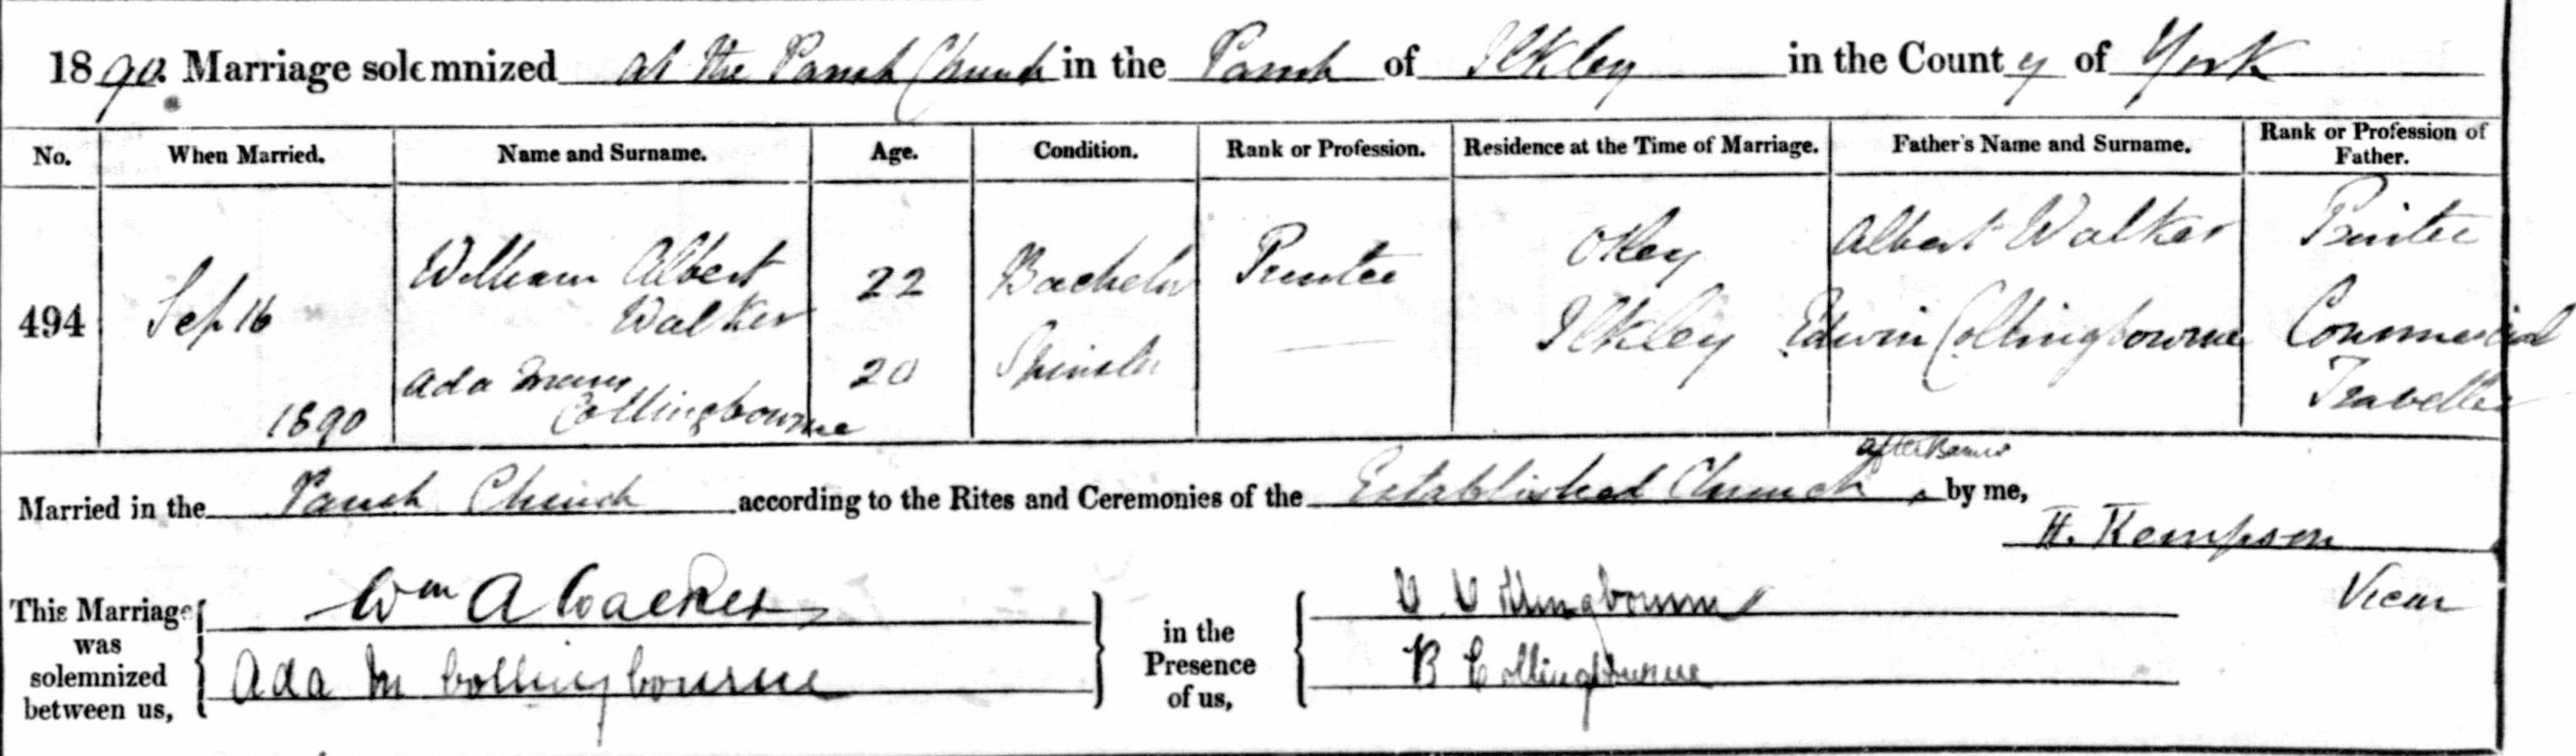 1890. Marriage solemnized at the Parish Church in the Parish of Ilkley in the County of York
No. When Married. Name and Surname. Age. Condition. Rank or Profession. Residence at the Time of Marriage. Father's Name and Surname. Rank or Profession of Father.
494 Sep 16 1890
William Albert Walker 22 Bachelor Printer Otley Albert Walker Printer
Ada Mary Collingbourne 20 Spinster — Ilkley Edwin Collingbourne Commercial Traveller
after Banns
Married in the Parish Church according to the Rites and Ceremonies of the Established Church, by me,
H. Kempson
Vicar
This Marriage was solemnized between us,
Wm A Walker
Ada M Collingbourne
in the Presence of us,
Collingbourne
B Collingbourne